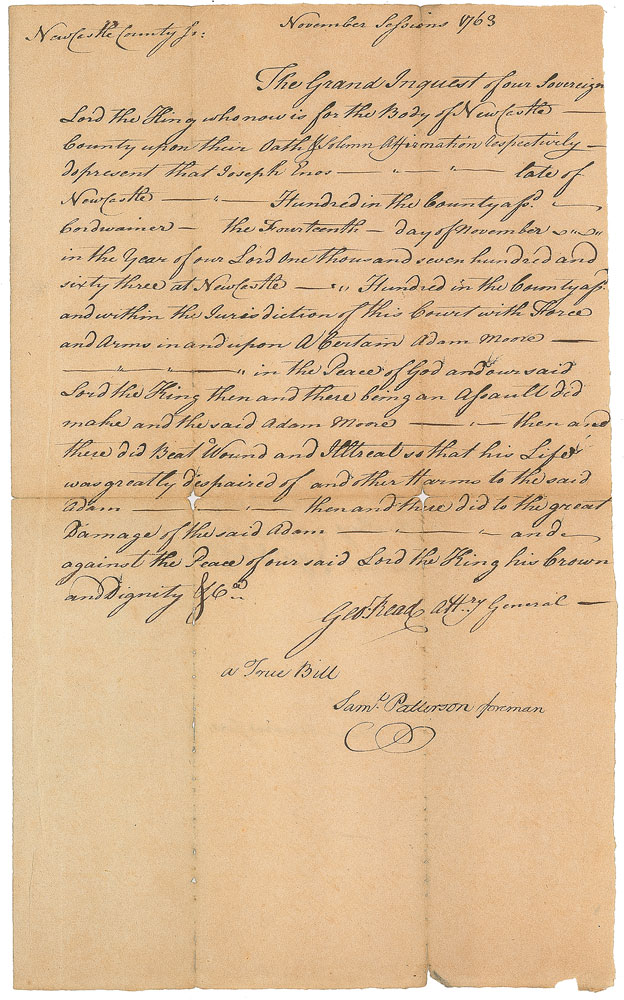 NewCastle County Ss:
November Sessions 1763
The Grand Inquest of our Sovereign
Lord the King who now is for the Body of NewCastle —
County upon their Oath & Solemn Affirmation respectively —
do present that Joseph Enos — " — " — late of
NewCastle — " — Hundred in the County afsd. —
Cordwainer — the Fourteenth — day of November
in the Year of our Lord One thousand seven hundred and
sixty three at NewCastle — " Hundred in the County afsd.
and within the Jurisdiction of this Court with Force
and Arms in and upon A Certain Adam Moore —
— " — " — " in the Peace of God and our said
Lord the King then and there being an Assault did
make and the said Adam Moore — " — then and
there did Beat Wound and Illtreat so that his Life
was greatly despaired of and other Harms to the said
Adam — " — then and there did to the great
Damage of the said Adam — " — " and
against the Peace of our said Lord the King his Crown
and Dignity &Ca.
Geo: Read Attry General —
a True Bill
Saml. Patterson foreman